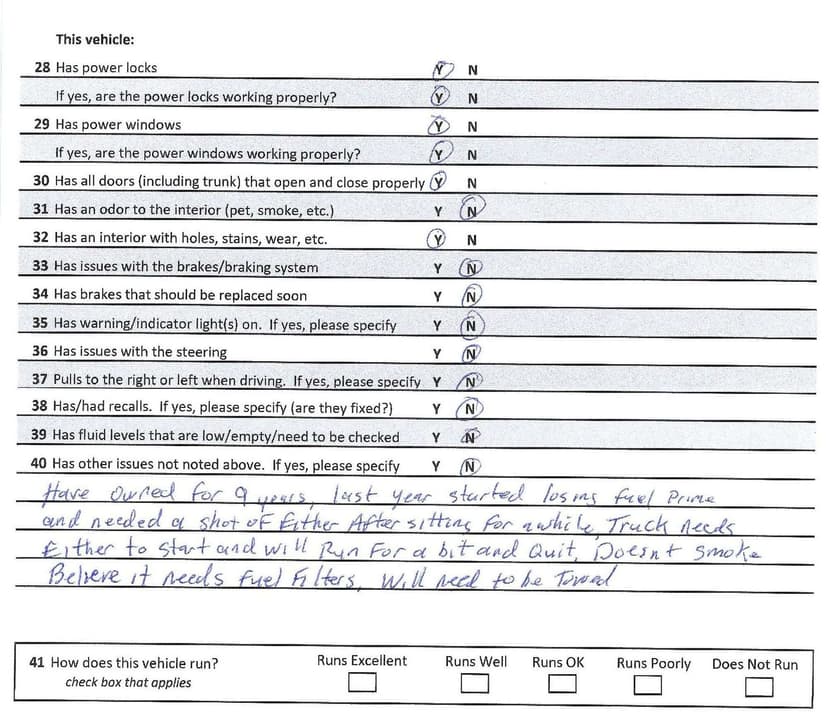 This vehicle:
28 Has power locks Y N
If yes, are the power locks working properly? Y N
29 Has power windows Y N
If yes, are the power windows working properly? Y N
30 Has all doors (including trunk) that open and close properly Y N
31 Has an odor to the interior (pet, smoke, etc.) Y N
32 Has an interior with holes, stains, wear, etc. Y N
33 Has issues with the brakes/braking system Y N
34 Has brakes that should be replaced soon Y N
35 Has warning/indicator light(s) on. If yes, please specify Y N
36 Has issues with the steering Y N
37 Pulls to the right or left when driving. If yes, please specify Y N
38 Has/had recalls. If yes, please specify (are they fixed?) Y N
39 Has fluid levels that are low/empty/need to be checked Y N
40 Has other issues not noted above. If yes, please specify Y N
Have owned for 9 years, last year started losing fuel Prime
and needed a shot of Either After sitting for awhile, Truck needs
Either to start and will Run For a bit and Quit, Doesnt smoke
Believe it needs Fuel Filters, Will need to be Towed
41 How does this vehicle run? Runs Excellent Runs Well Runs OK Runs Poorly Does Not Run
check box that applies